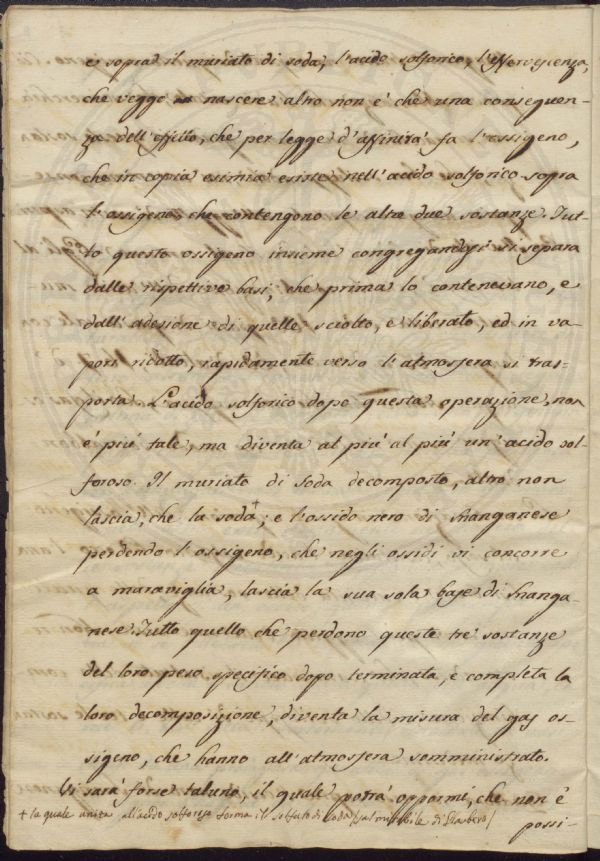 e sopra il muriato di soda, l'acido solforico, l'effervescenza,
che veggo nascere altro non è che una conseguen-
za dell'effetto, che per legge d'affinità fa l'ossigeno,
che in copia esimia esiste nell'acido solforico sopra
l'ossigeno, che contengono le altre due sostanze. Tut-
to questo ossigeno insieme congregandosi si separa
dalle rispettive basi, che prima lo contenevano, e
dall'adesione di quelle sciolto, e liberato, ed in va-
pori ridotto, rapidamente verso l'atmosfera si tras-
porta. L'acido solforico dopo questa operazione, non
è più tale, ma diventa al più al più un'acido sol-
foroso. Il muriato di Soda decomposto, altro non
lascia, che la soda+; e l'ossido nero di Manganese
perdendo l'ossigeno, che negli ossidi vi concorre
a maraviglia, lascia la sua sola base di Manga-
nese. Tutto quello che perdono queste trè sostanze
del loro peso specifico dopo terminata, e completa la
loro decomposizione, diventa la misura del gas os-
sigeno, che hanno all'atmosfera somministrato.
Vi sarà forse taluno, il quale potrà oppormi, che non è
+ la quale unita all'acido solforoso forma il solfato di Soda /sal mirabile di Glaubero/
possi-